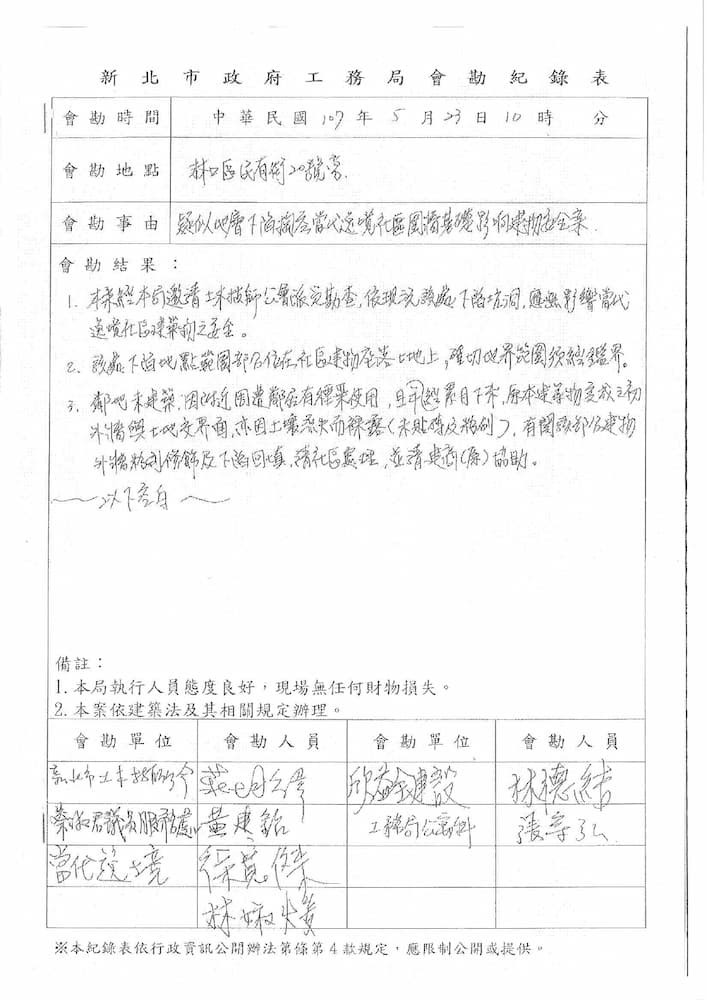 新北市政府工務局會勘紀錄表
會勘時間 中華民國107年5月23日10時 分
會勘地點 林口區民有街20號旁
會勘事由 疑似地層下陷掏空當代遠境社區圍牆基礎影响建物安全案
會勘結果:
1. 本案經本局邀請土木技師公會派員勘查,依現況該處下陷坑洞,應無影響當代
遠境社區建築物之安全。
2. 該處下陷地點範圍部份位在社區建物座落土地上,確切地界範圍須經鑑界。
3. 鄰地未建築,因附近周遭鄰居有種菜使用,且年經累月下來,原本建築物完成之初
外牆與土地交界面,亦因土壤流失而裸露(未貼磚及粉刷),有關該部份建物
外牆粉刷修飾及下陷回填,請社區處理,並請建商(原)協助。
～以下空白～
備註:
1.本局執行人員態度良好,現場無任何財物損失。
2.本案依建築法及其相關規定辦理。
會勘單位 會勘人員 會勘單位 會勘人員
新北市土木技師公會 欣益金建設 林德結
蔡淑君議員服務處 黃建銘 工務局公寓科
當代遠境
※本紀錄表依行政資訊公開辦法第條第4款規定,應限制公開或提供。